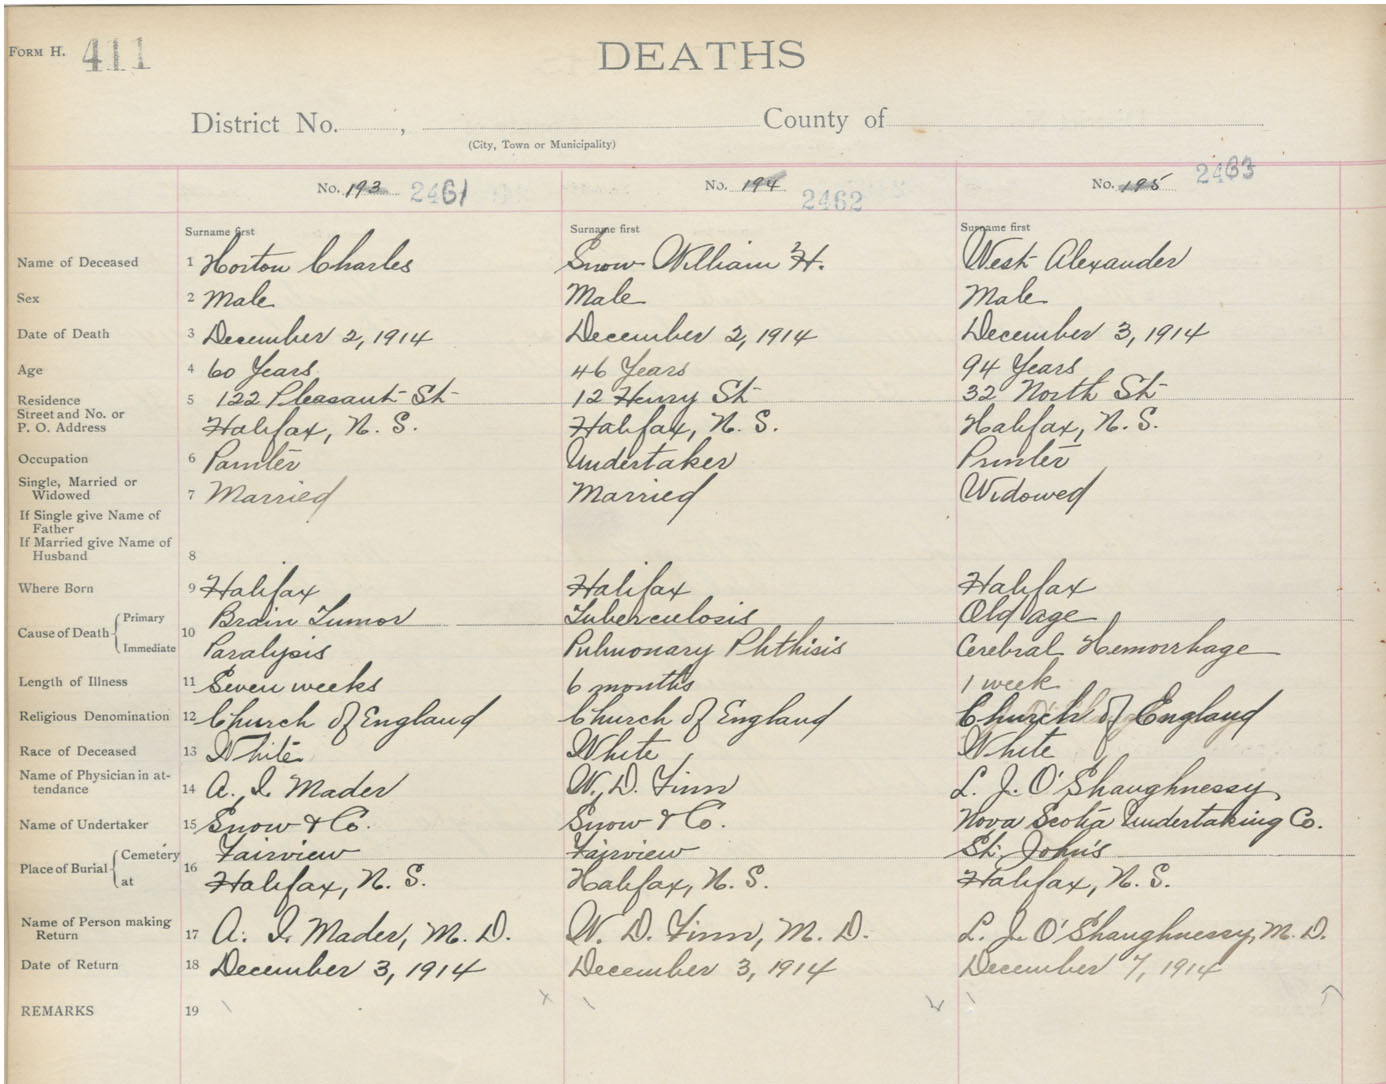 FORM H. 411
DEATHS
District No. , County of
(City, Town or Municipality)
No. 193 2461 No. 194 2462 No. 195 2463
Surname first Surname first Surname first
Name of Deceased 1 Horton Charles Snow William H. West Alexander
Sex 2 Male Male Male
Date of Death 3 December 2, 1914 December 2, 1914 December 3, 1914
Age 4 60 Years 46 Years 94 Years
Residence 5 122 Pleasant St 12 Henry St 32 North St
Street and No. or
P. O. Address Halifax, N. S. Halifax, N. S. Halifax, N. S.
Occupation 6 Painter Undertaker Printer
Single, Married or
Widowed 7 Married Married Widowed
If Single give Name of
Father
If Married give Name of
Husband 8
Where Born 9 Halifax Halifax Halifax
Cause of Death 10 Primary Brain Tumor Tuberculosis Old age
Immediate Paralysis Pulmonary Phthisis Cerebral Hemorrhage
Length of Illness 11 Seven weeks 6 months 1 week
Religious Denomination 12 Church of England Church of England Church of England
Race of Deceased 13 White White White
Name of Physician in at-
tendance 14 A. I. Mader W. D. Finn L. J. O'Shaughnessy
Name of Undertaker 15 Snow & Co. Snow & Co. Nova Scotia Undertaking Co.
Place of Burial 16 Cemetery Fairview Fairview St. John's
at Halifax, N. S. Halifax, N. S. Halifax, N. S.
Name of Person making
Return 17 A. I. Mader, M. D. W. D. Finn, M. D. L. J. O'Shaughnessy, M. D.
Date of Return 18 December 3, 1914 December 3, 1914 December 7, 1914
REMARKS 19